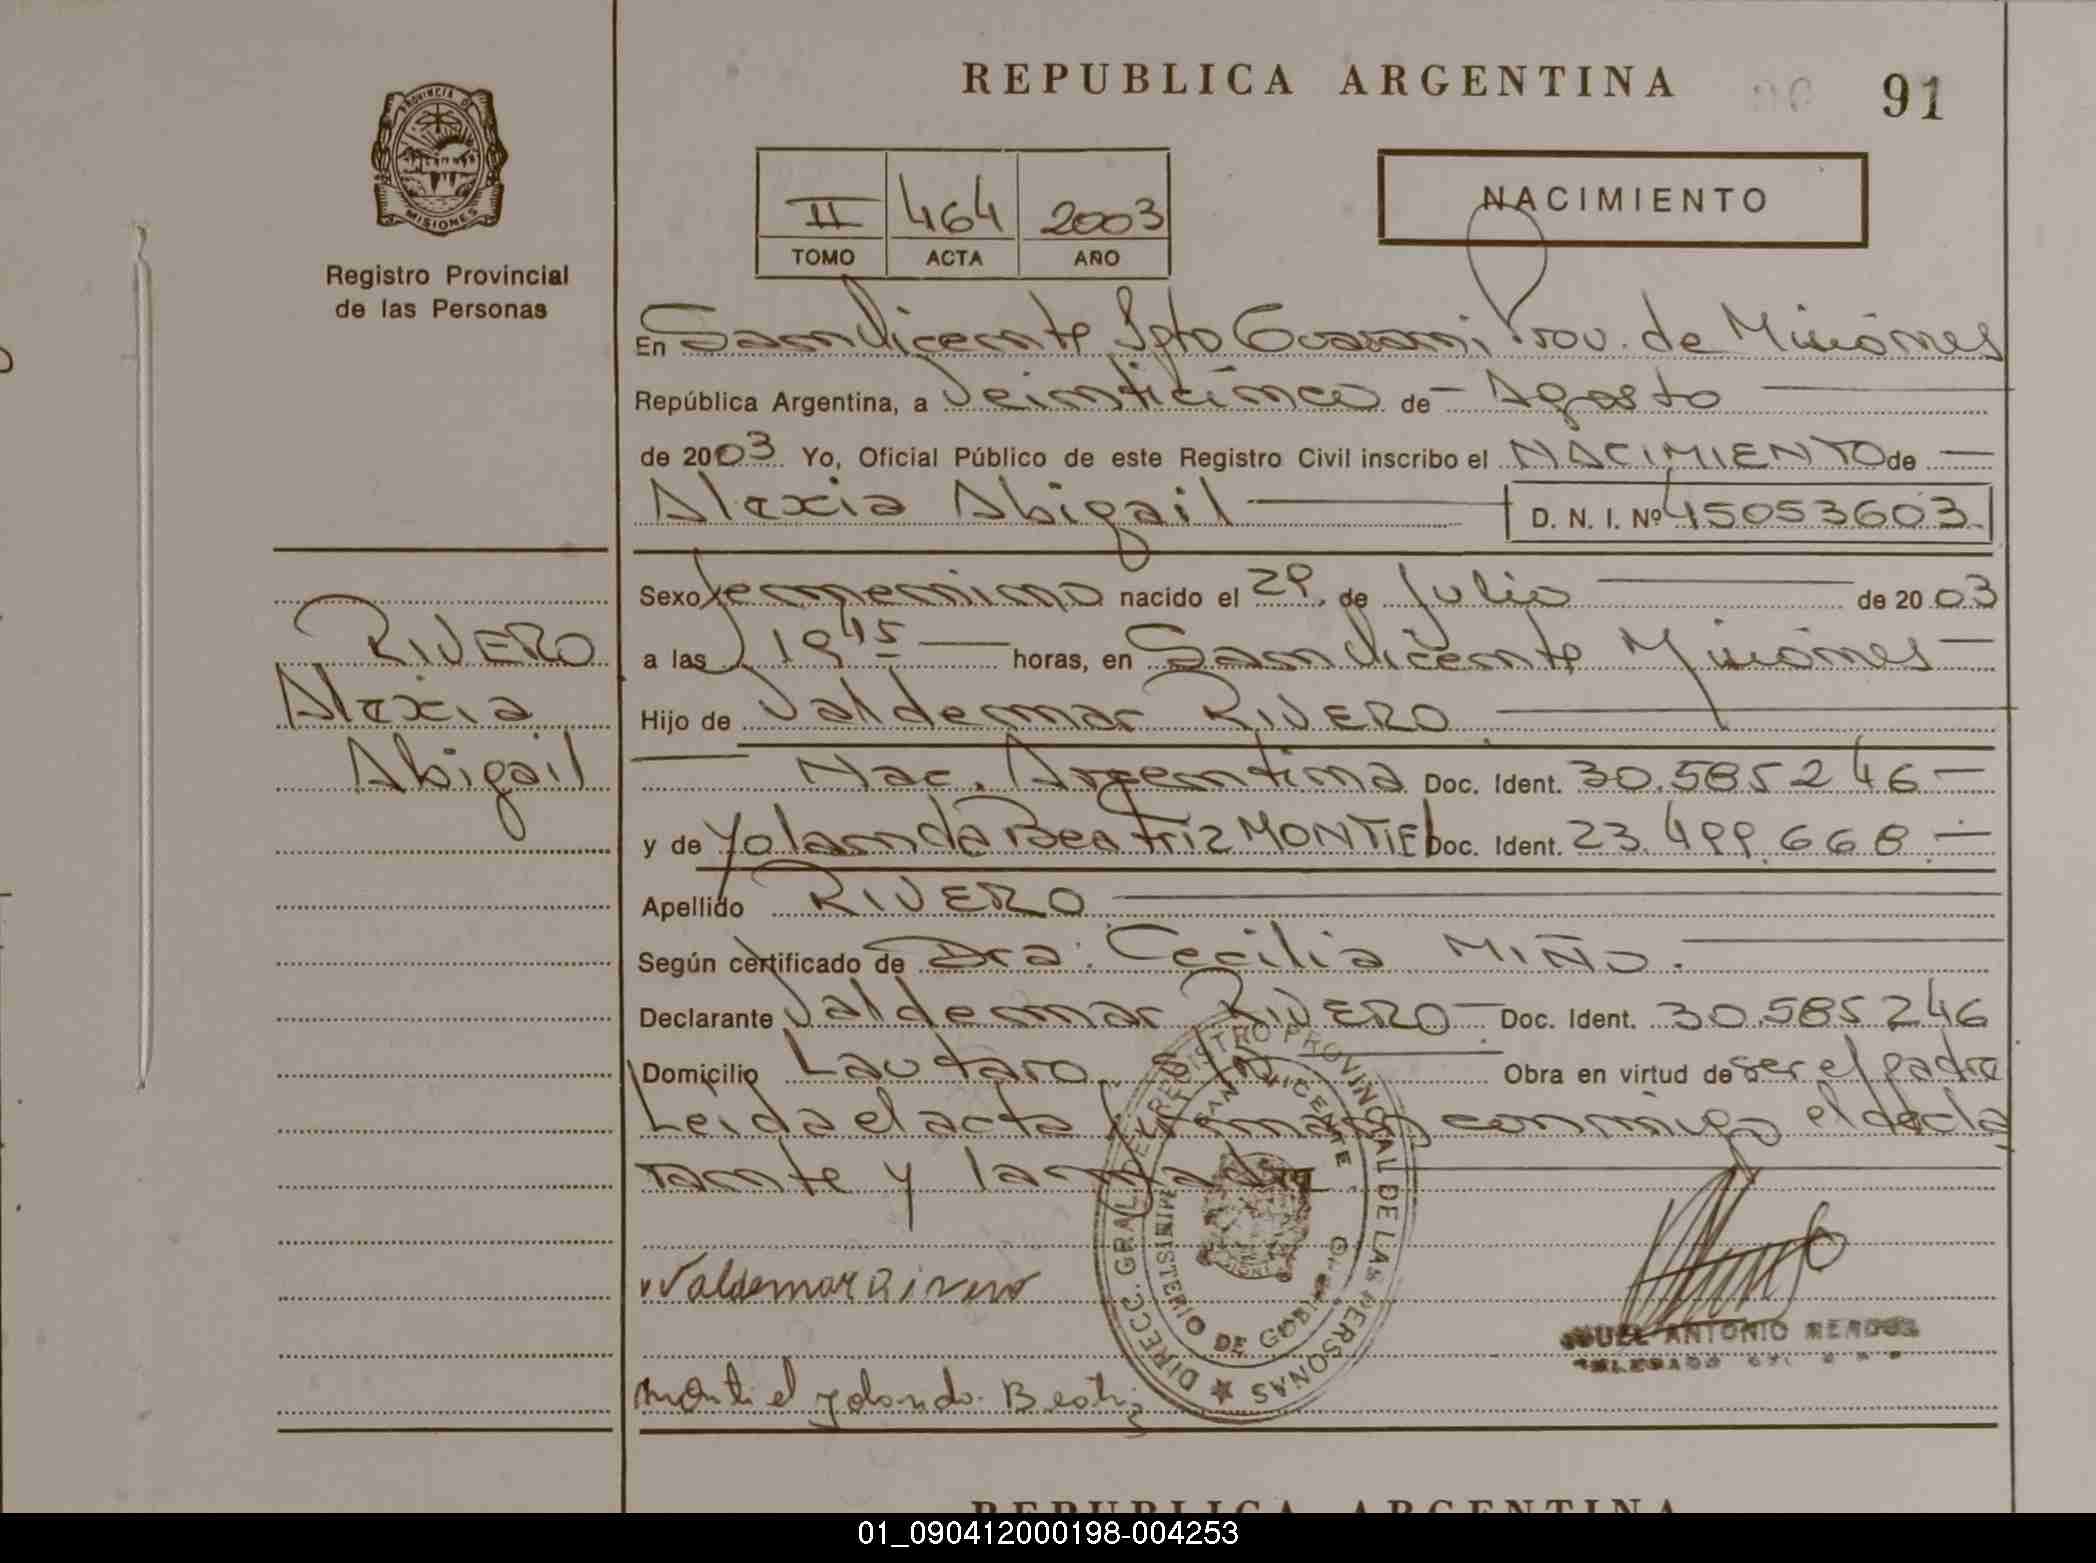 REPUBLICA ARGENTINA
91
PROVINCIA DE
MISIONES
Registro Provincial
de las Personas
II 464 2003
TOMO ACTA AÑO
NACIMIENTO
En San Vicente Dpto Guarani Prov. de Misiones
República Argentina, a Veinticinco de Agosto
de 2003 Yo, Oficial Público de este Registro Civil inscribo el NACIMIENTO de
Alexia Abigail D. N. I. Nº 45053603
Sexo femenino nacido el 29 de Julio de 2003
a las 19 45 horas, en San Vicente Misiones
Hijo de Valdemar RIVERO
Nac. Argentina Doc. Ident. 30.585246
y de Yolanda Beatriz MONTIEL Doc. Ident. 23.499.668
Apellido RIVERO
Según certificado de Dra. Cecilia MIÑO.
Declarante Valdemar RIVERO Doc. Ident. 30.585246
Domicilio Lautaro s/n Obra en virtud de ser el padre
Leida el acta firman conmigo el decla
rante y la madre
RIVERO
Alexia
Abigail
Valdemar Rivero
Montiel Yolanda Beatriz
DIRECC. GRAL. DEL REGISTRO PROVINCIAL DE LAS PERSONAS
SAN VICENTE
MINISTERIO DE GOBIERNO
ANTONIO
REPUBLICA ARGENTINA
01_090412000198-004253